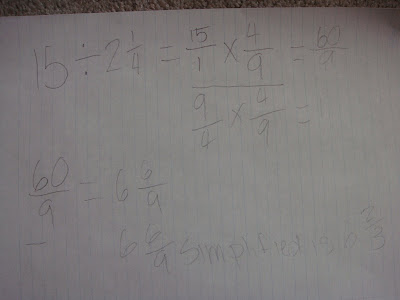 15 ÷ 2 1/4 = 15/1 × 4/9 = 60/9
9/4 × 4/9 =
60/9 = 6 6/9
6 6/9 simplified is 6 2/3